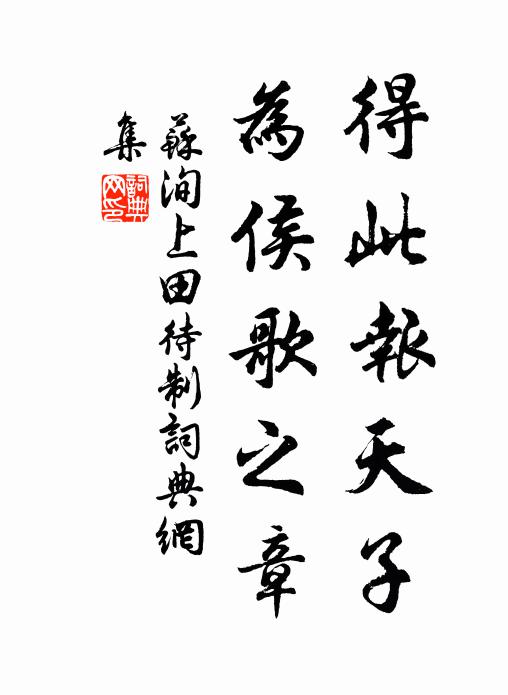 得此報天子
為侯歌之章
蘇洵上田待制詞典網
集
詞典
网印